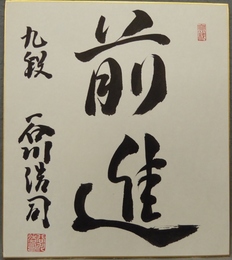 前進
九段
谷川浩司